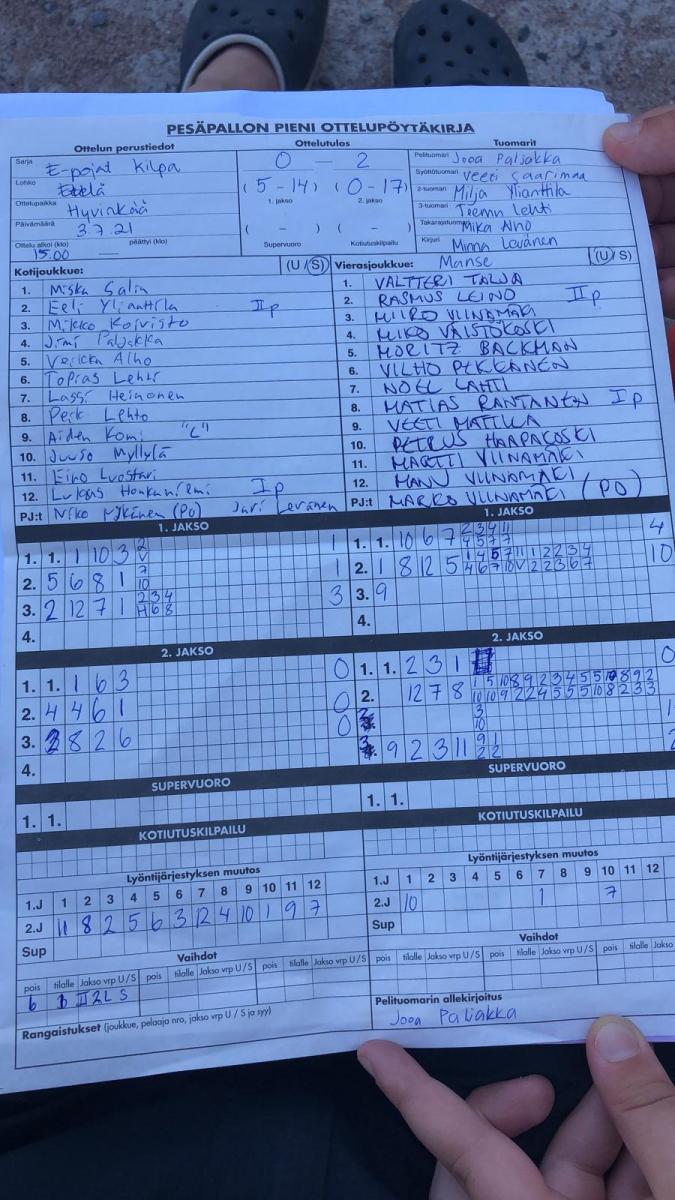 PESÄPALLON PIENI OTTELUPÖYTÄKIRJA
Ottelun perustiedot Ottelutulos Tuomarit
Sarja E-pojat Kilpa 0 - 2 Pelituomari Jooa Paljakka
Lohko Etelä (5-14) (0-17) Syöttötuomari Veeti Saarimaa
Ottelupaikka Hyvinkää 1. jakso 2. jakso 2-tuomari Milja Ylianttila
Päivämäärä 3.7.21 ( - ) ( - ) 3-tuomari Teemu Lehti
Ottelu alkoi (klo) 15.00 päättyi (klo) Supervuoro Kotiutuskilpailu Takarajatuomari Mika Aho
Kirjuri Minna Levänen
Kotijoukkue: (U/S) Vierasjoukkue: Manse (U/S)
1. Miska Salin 1. VALTTERI TALJA
2. Eeli Ylianttila II p 2. RASMUS LEINO II p
3. Mikko Koivisto 3. MIIRO VIINAMÄKI
4. Jimi Paljakka 4. MIKO VÄISTÖKOSKI
5. Veikka Alho 5. MORITZ BACKMAN
6. Topias Lehti 6. VILHO PEKKANEN
7. Lassi Heinonen 7. NOEL LAHTI
8. Peik Lehto 8. MATIAS RANTANEN I p
9. Aiden Komi "C" 9. VEETI MATTILA
10. Juuso Myllylä 10. PETRUS HAAPAKOSKI
11. Eino Luostari 11. MARTTI VIINAMÄKI
12. Lukas Honkaniemi I p 12. MANU VIINAMÄKI
PJ:t Niko Mykinen (PO) Jari Levänen PJ:t MARKO VIINAMÄKI (PO)
1. JAKSO 1. JAKSO
1. 1. 1 10 3 2 V 1 1. 1. 10 6 7 2 3 4 11 4 5 7 7 4
2. 5 6 8 1 7 10 1 2. 1 8 12 5 1 4 5 7 11 1 2 2 3 4 4 6 7 10 V 2 2 3 6 7 10
3. 2 12 7 1 2 3 4 H 6 8 3 3. 9
4. 4.
2. JAKSO 2. JAKSO
1. 1. 1 6 3 0 1. 1. 2 3 1 0
2. 4 4 6 1 0 2. 12 7 8 1 5 10 8 9 2 3 4 5 5 10 8 9 2 10 10 9 2 2 4 5 5 5 10 8 2 3 3
3 10
3. 2 8 2 6 0 3. 9 2 3 11 9 1 2 2 2
4.
SUPERVUORO SUPERVUORO
1. 1. 1. 1.
KOTIUTUSKILPAILU KOTIUTUSKILPAILU
Lyöntijärjestyksen muutos Lyöntijärjestyksen muutos
1.J 1 2 3 4 5 6 7 8 9 10 11 12 1.J 1 2 3 4 5 6 7 8 9 10 11 12
2.J 11 8 2 5 6 3 12 4 10 1 9 7 2.J 10 1 7
Sup Sup
Vaihdot Vaihdot
pois tilalle Jakso vrp U/S pois tilalle Jakso vrp U/S pois tilalle Jakso vrp U/S pois tilalle Jakso vrp U/S pois tilalle Jakso vrp U/S pois tilalle Jakso
6 II 2L S
Rangaistukset (joukkue, pelaaja nro, jakso vrp U / S ja syy) Pelituomarin allekirjoitus
Jooa Paljakka